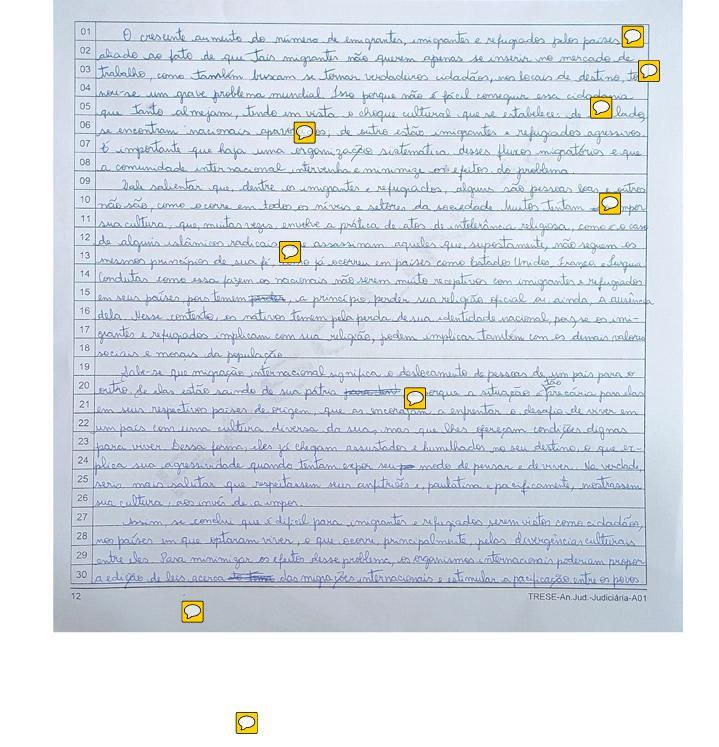 01 O crescente aumento do número de emigrantes, imigrantes e refugiados pelos países
02 aliado ao fato de que tais migrantes não querem apenas se inserir no mercado de
03 trabalho, como também buscam se tornar verdadeiros cidadãos, nos locais de destino, to
04 nou-se um grave problema mundial. Isso porque não é fácil conseguir essa cidadania
05 que tanto almejam, tendo em vista o choque cultural que se estabelece: de lado,
06 se encontram nacionais de outro estão imigrantes e refugiados agressivos.
07 É importante que haja uma organização sistemática desses fluxos migratórios e que
08 a comunidade internacional intervenha e minimize os efeitos do problema.
09 Vale salientar que, dentre os imigrantes e refugiados, alguns são pessoas boas e outros
10 não são, como ocorre em todos os níveis e setores da sociedade. Muitos tentam impor
11 sua cultura, que, muitas vezes, envolve a prática de atos de intolerância religiosa, como é o caso
12 de alguns islâmicos radicais e assassinam aqueles que, supostamente, não seguem os
13 mesmos princípios de sua fé, como já ocorreu em países como Estados Unidos, França e
14 Condutas como essa fazem os nacionais não serem muito receptivos com imigrantes e refugiados
15 em seus países, pois temem, a princípio, perder sua religião oficial ou, ainda, a ausência
16 dela. Nesse contexto, os nativos temem pela perda de sua identidade nacional, pois, se os imi-
17 grantes e refugiados implicam com sua religião, podem implicar também com os demais valores
18 sociais e morais da população.
19 Sabe-se que migração internacional significa o deslocamento de pessoas de um país para o
20 outro. Se elas estão saindo de sua pátria porque a situação é tão precária para elas
21 em seus respectivos países de origem, que as encorajam a enfrentar o desafio de viver em
22 um país com uma cultura diversa da sua, mas que lhes ofereçam condições dignas
23 para viver. Dessa forma, eles já chegam assustados e humilhados no seu destino, o que ex-
24 plica sua agressividade quando tentam expor seu modo de pensar e de viver. Na verdade,
25 seria mais salutar que respeitassem seus anfitriões e, paulatina e pacificamente, mostrassem
26 sua cultura, aos invés de a impor.
27 Assim, se conclui que é difícil para imigrantes e refugiados serem vistos como cidadãos,
28 nos países em que optaram viver, o que ocorre, principalmente, pelas divergências culturais
29 entre eles. Para minimizar os efeitos desse problema, os organismos internacionais poderiam propor
30 a edição de leis acerca das migrações internacionais e estimular a pacificação entre os povos.
12 TRESE-An.Jud.-Judiciária-A01